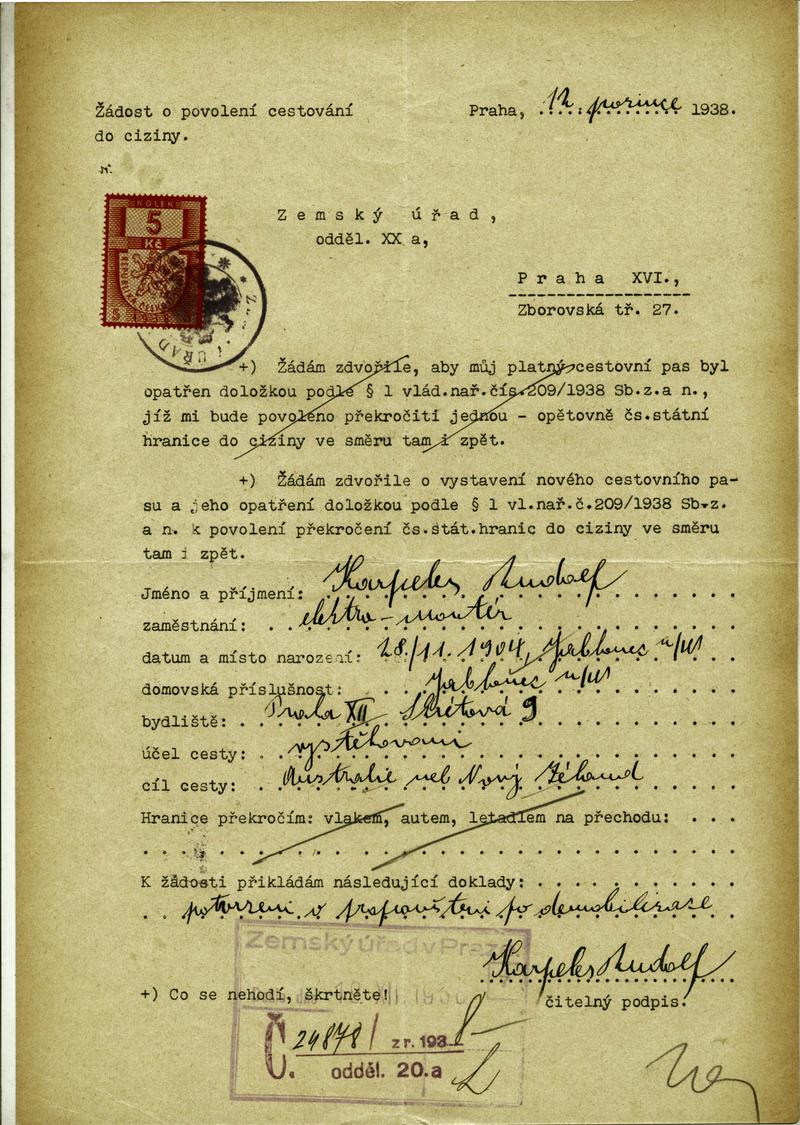 Žádost o povolení cestování
do ciziny.
Praha, 12. prosince 1938.
KOLEK
5
Kč
5
Zemský úřad,
odděl. XX a,
Praha XVI.,
Zborovská tř. 27.
ÚŘAD
+) Žádám zdvořile, aby můj platný cestovní pas byl
opatřen doložkou podle § 1 vlád.nař.čís.209/1938 Sb.z.a n.,
jíž mi bude povoleno překročiti jednou - opětovně čs.státní
hranice do ciziny ve směru tam i zpět.
+) Žádám zdvořile o vystavení nového cestovního pa-
su a jeho opatření doložkou podle § 1 vl.nař.č.209/1938 Sb.z.
a n. k povolení překročení čs.stát.hranic do ciziny ve směru
tam i zpět.
Jméno a příjmení: Karpeles Rudolf
zaměstnání: elektro-montér
datum a místo narození: 28/11. 1904, Jablonec n/N
domovská příslušnost: Jablonec n/N
bydliště: Praha XII Skrétová 9
účel cesty: vystěhovaní
cíl cesty: Australie neb Nový Zéland
Hranice překročím: vlakem, autem, letadlem na přechodu:
K žádosti přikládám následující doklady:
potvrzení o propuštění po demobilisace
Karpeles Rudolf
čitelný podpis.
+) Co se nehodí, škrtněte!
Zemský úřad v Praze
Č. 24878/ z r. 1938
odděl. 20.a